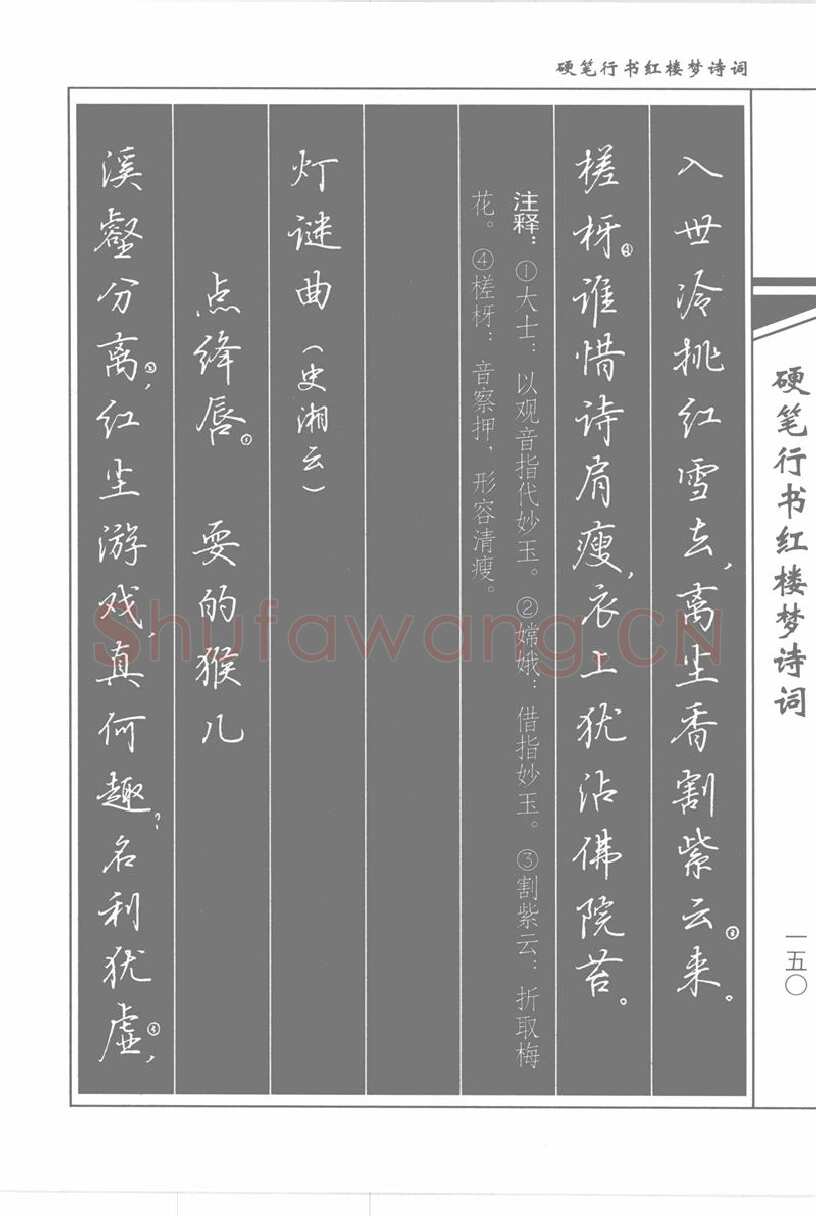 硬笔行书红楼梦诗词
入世冷挑红雪去，离尘香割紫云③来。
槎枒④谁惜诗肩瘦，衣上犹沾佛院苔。
注释：①大士：以观音指代妙玉。②嫦娥：借指妙玉。③割紫云：折取梅
花。④槎枒：音察押，形容清瘦。
灯谜曲（史湘云）
点绛唇①。 耍的猴儿
溪壑分离②，红尘游戏，真何趣？名利犹虚③，
硬笔行书红楼梦诗词
一五〇
Shufawang.CN